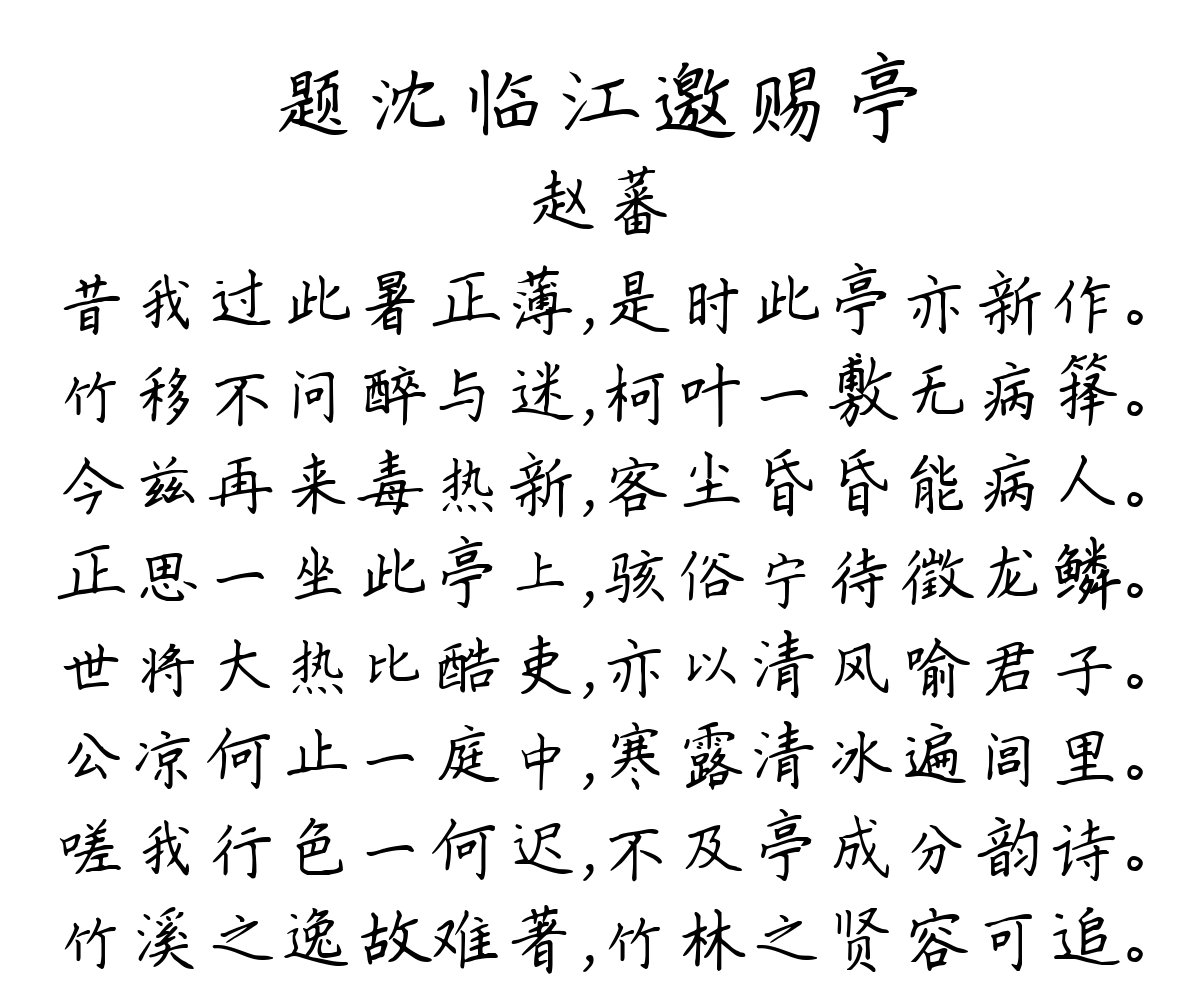 题沈临江邀赐亭
赵蕃
昔我过此暑正薄,是时此亭亦新作。
竹移不问醉与迷,柯叶一敷无病箨。
今兹再来毒热新,客尘昏昏能病人。
正思一坐此亭上,骇俗宁待徵龙鳞。
世将大热比酷吏,亦以清风喻君子。
公凉何止一庭中,寒露清冰遍闾里。
嗟我行色一何迟,不及亭成分韵诗。
竹溪之逸故难著,竹林之贤容可追。